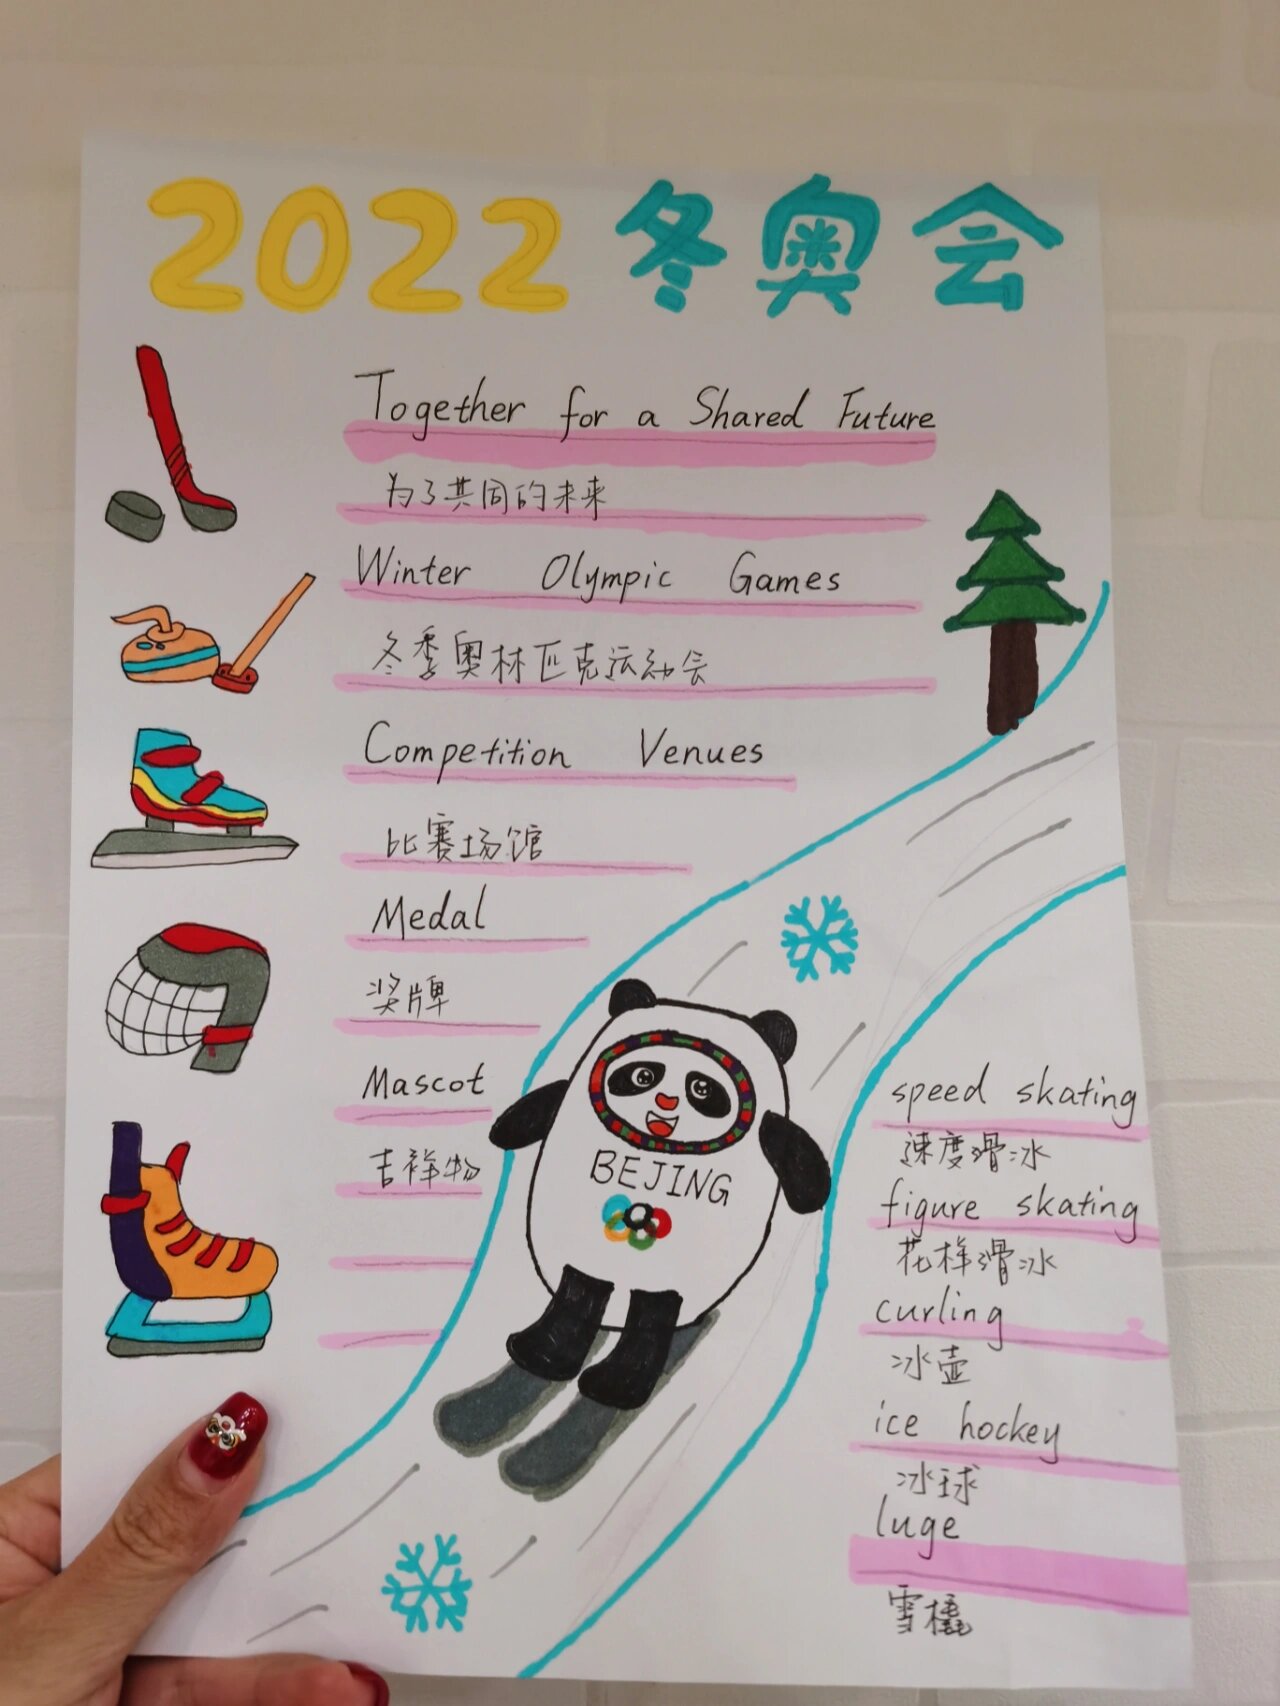 2022 冬奥会
Together for a Shared Future
为了共同的未来
Winter Olympic Games
冬季奥林匹克运动会
Competition Venues
比赛场馆
Medal
奖牌
Mascot
吉祥物
BEJING
speed skating
速度滑冰
figure skating
花样滑冰
curling
冰壶
ice hockey
冰球
luge
雪橇